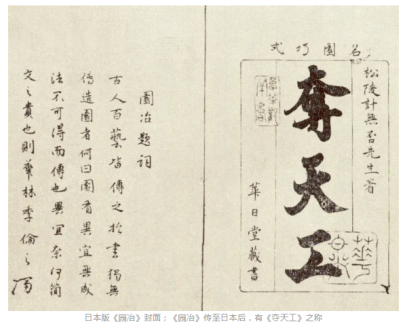 名園巧式
松陵計無否先生著
奪天工
華日堂藏書
園冶題詞
古人百藝皆傳之於書獨無
傳造園者何曰園有異宜無成
法不可得而傳也異宜奈何簡
文之貴也則華林季倫之
日本版《园冶》封面；《园冶》传至日本后，有《夺天工》之称